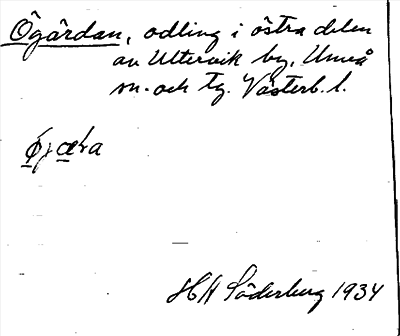 Ögårdan, odling i östra delen
av Ultervik by, Umeå
sn. och tg. Västerb. l.
H H Söderberg 1934